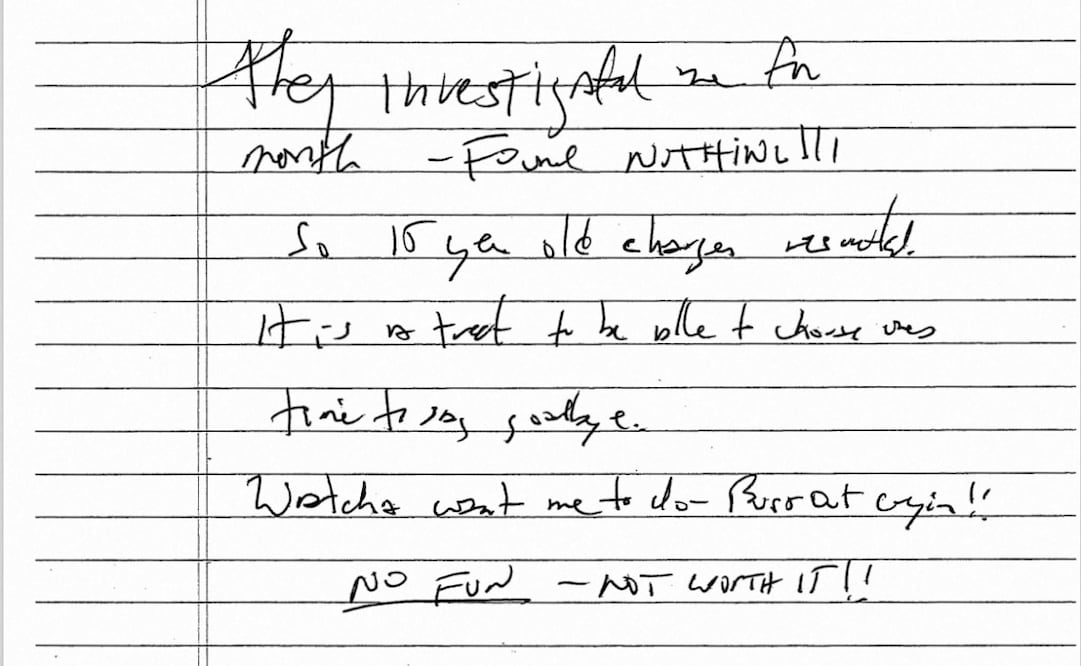 They investigated me for
month - Found NOTHING!!!
So 15 year old charges resulted.
It is a treat to be able to choose ones
time to say goodbye.
Watcha want me to do - Burst out cryin!!
NO FUN - NOT WORTH IT!!